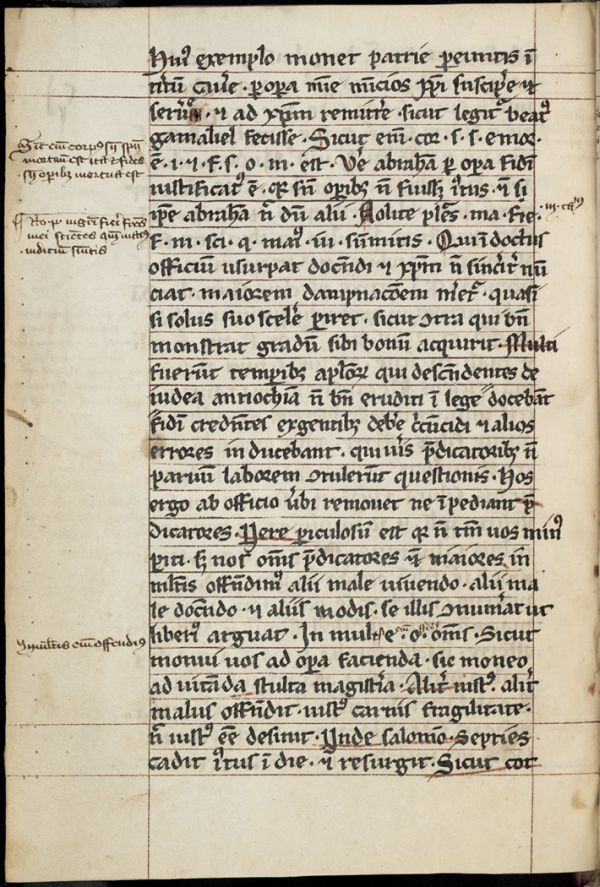 Huiꝰ exemplo monet patrie peruntis ī
tritū cur̄e · ꝑ opera mīe nūcios xp̄i suscipe̅ ⁊
serua · ⁊ ad xp̄m remitte̅ · sicut legit᷑ beatꝰ
gamaliel fecisse · Sicut em̄ · cor · s · s · e mor ·
ē · i · ⁊ · f · s · o · m · est · Ve̅ abrahā ꝑ opera fidū
iustificatꝰ ē · qꝛ sn̄ opibꝫ n̄
ip̄e abrahā n̄ dū alii · Nolite pl̄es · ma · fie ·
f · m · sci · q · maꝰ · iu · sumitis · Qui īdoctus
officium usurpat docendi ⁊ xp̄m n̄ sincit̄ nū
ciat · maiorem dampnacōem m̄et᷑ · quasi
si solus suo sceler̄e piret · sicut ꝯtra qui bn̄
monstrat gradum sibi bonum acquirit · Multi
fuerūt temporibꝫ aplōꝝ qui descendentes de
iudea antiochiā n̄ bn̄ eruditi ī lege docebāt
fidē credentes ex gentibꝫ debe̅ cīcūcidi ⁊ alios
errores inducebant · qui ūis p̄dicatoribꝫ n̄
paruū laborem ꝯtulerūt questionis · Hos
ergo ab officio ūbi remouet ne īpediant p̄
dicatores · Vere piculosū est qꝛ n̄ tm̄ uos minꝰ
piti · sꝫ nos om̄s p̄dicatores ⁊ maiores in
multis offendimꝰ alii male uiuendo · alii ma
le docendo · ⁊ aliis modis · se illis ꝯnumerat ut
liberiꝰ arguat · In mul e · o · om̄s · Sicut
monui uos ad opera facienda · sic moneo
ad uitanda stulta magistria · Alit̄ iustꝰ alit̄
malus offendit · iustꝰ carnis fragilitate ·
n̄ iustꝰ ee̅ desinit · Unde salomō · Septies
cadit iustus ī die · ⁊ resurgit · Sicut cor
Sic em̄ corpꝰ sn̄ spū
mortuū est ita ⁊ fides
sn̄ opibꝫ mortua est
fieri fr̄es
mei scientes qm̄ maiꝰ
iudiciū sumitis
· iii · ca
In multis em̄ offendimꝰ